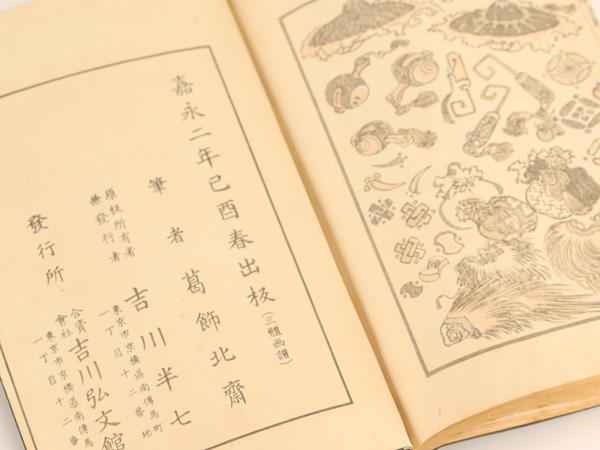 嘉永二年己酉春出板(三體画譜)
筆者葛飾北齋
原板所有者
兼發行者
吉川半七
東京市京橋區南傳馬町
一丁目十二番地
發行所
合資
會社
吉川弘文館
東京市京橋區南傳馬
一丁目十二番